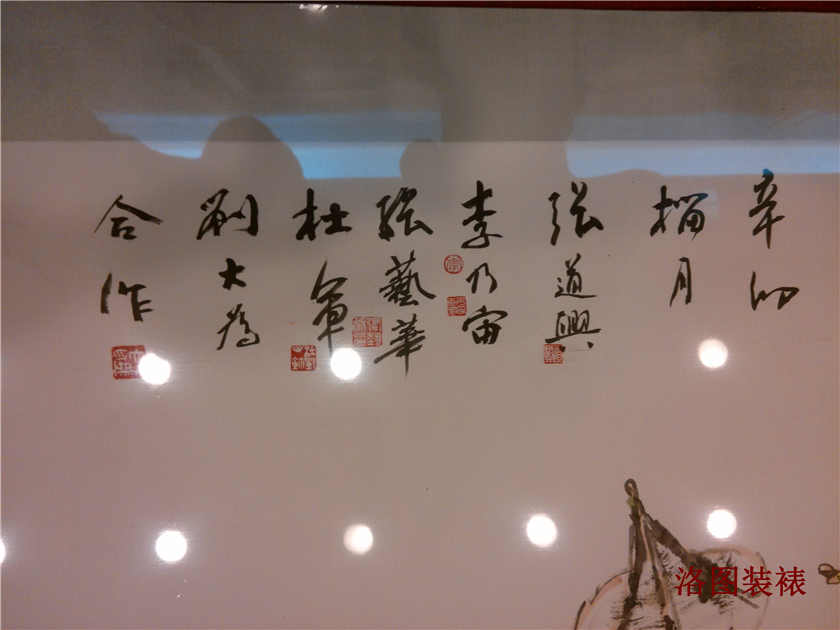 辛卯
榴月
張道興
李乃宙
張藝華
杜軍
劉大為
合作
洛图装裱